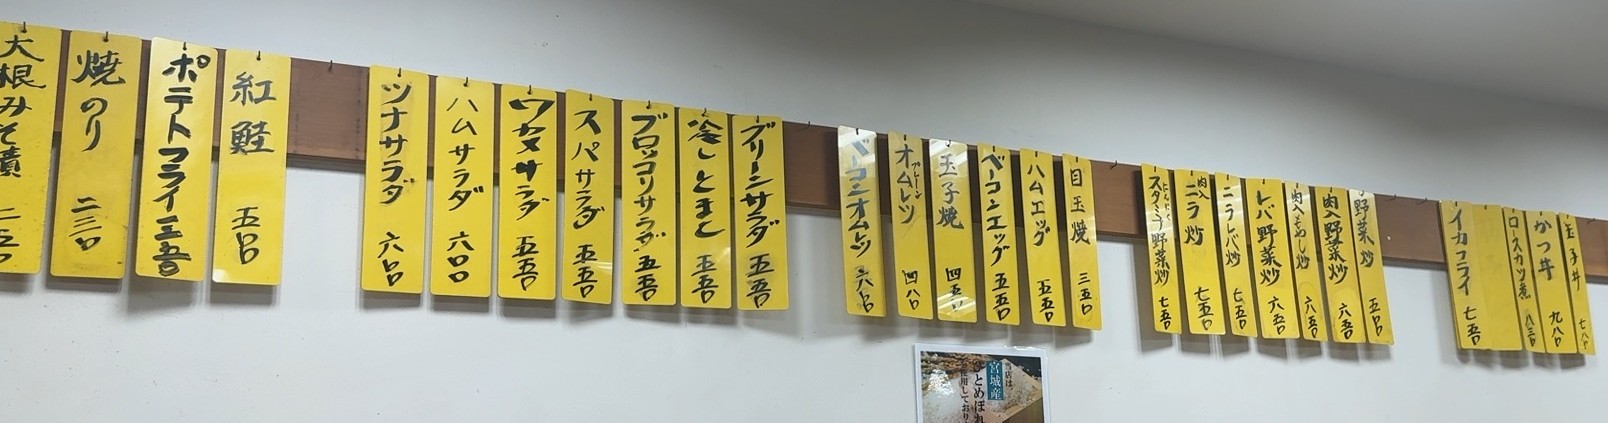 大根みそ漬 二五〇
焼のり 二三〇
ポテトフライ 三五〇
紅鮭 五〇〇
ツナサラダ 六〇〇
ハムサラダ 六〇〇
ワカメサラダ 五五〇
スパサラダ 五五〇
ブロッコリサラダ 五五〇
冷しとまと 五五〇
グリーンサラダ 五五〇
ベーコンオムレツ 六八〇
プレーン
オムレツ 四八〇
玉子焼 四五〇
ベーコンエッグ 五五〇
ハムエッグ 五五〇
目玉焼 三五〇
にんにく
スタミラ野菜炒 七五〇
肉入
ニラ炒 七五〇
ニラレバ炒 七五〇
レバ野菜炒 六五〇
肉入もやし炒 六五〇
肉入野菜炒 六五〇
野菜炒 五五〇
イカフライ 七五〇
ロースカツ煮 八三〇
かつ丼 九八〇
玉子丼 七八〇
当店は
宮城産
ひとめぼれ
使用しており